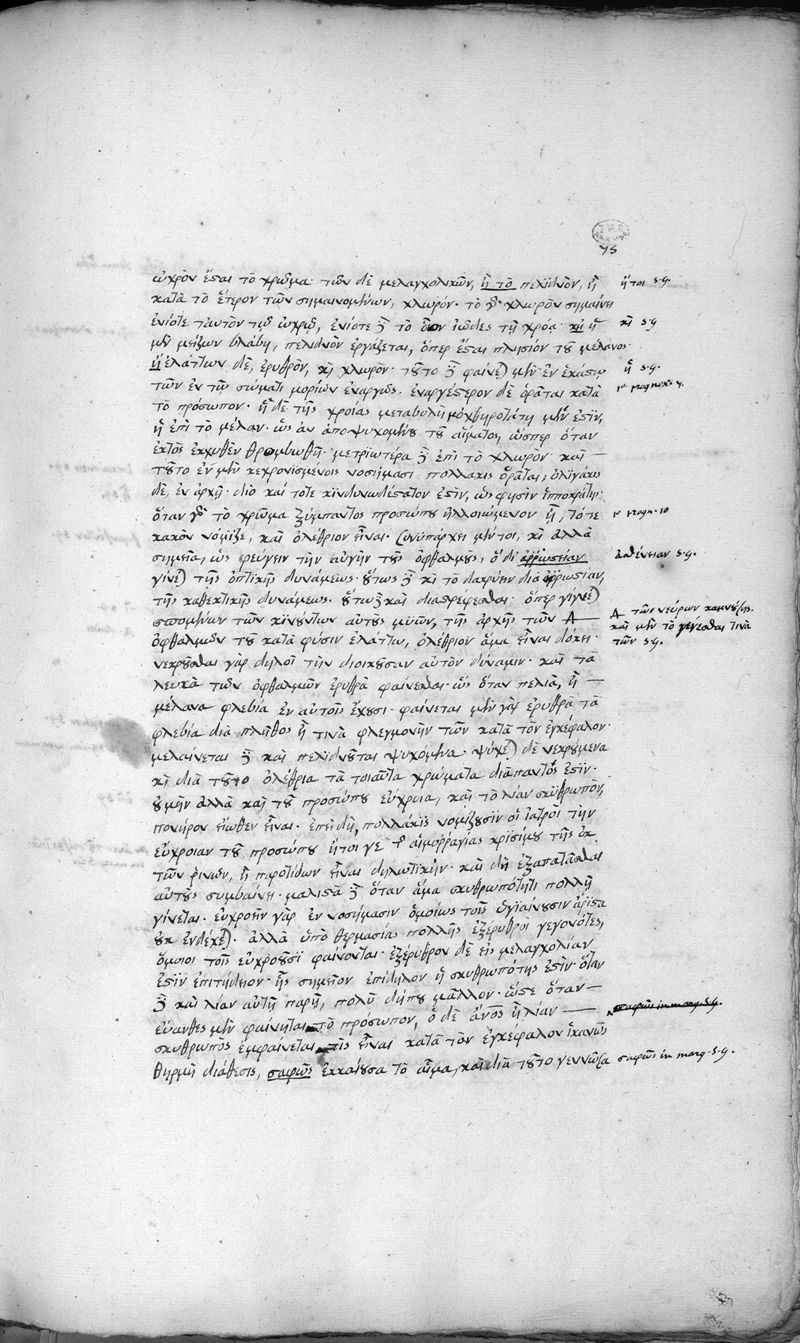 75
ὠχρὸν ἔσται τὸ χρῶμα· τῶν δὲ μελαγχολικῶν, ἢ τὸ πελιδνὸν, ἢ ἤτοι s.g.
κατὰ τὸ ἕτερον τῶν σημαινομένων, χλωρόν· τὸ γὰρ χλωρὸν σημαίνει
ἐνίοτε ταυτὸν τῷ ὠχρῷ, ἐνίοτε δὲ τὸ ἰῶδες τῇ χρόᾳ· ἡ κὶ s.g.
μὲν μείζων βλάβη, πελιδνὸν ἐργάζεται, ὅπερ ἔσται πλησίον τοῦ μέλανος·
ἡ ἐλάττων δὲ, ἐρυθρὸν, κὶ χλωρόν· τοῦτο δὲ φαίνε) μὲν ἐν ἑκάστῳ ἢ s.g.
τῶν ἐν τῷ σώματι μορίων ἐναργῶς· ἐναργέστερον δὲ ὁρᾶται κατὰ
τὸ πρόσωπον· ἡ δὲ τῆς χροίας μεταβολὴ μοχθηροτάτη μὲν ἐστὶν,
ἡ ἐπὶ τὸ μέλαν· ὡς ἂν ἀποψυχομένου τοῦ αἵματος, ὥσπερ ὅταν
ἐκτὸς ἐκχυθὲν θρομβωθῇ· μετριωτέρα δὲ ἐπὶ τὸ χλωρόν· καὶ
τοῦτο ἐν μὲν κεχρονισμένοις νοσήμασι πολλάκις ὁρᾶται, ὀλιγάκις
δὲ, ἐν ἀρχῇ· διο καὶ τότε κινδυνωδέστατον ἐστὶν, ὡς φησὶν Ἱπποκράτης·
ὅταν γὰρ τὸ χρῶμα ξύμπαντος προσώπου ἠλλοιωμένον ᾖ, τότε 1° progn. 10
κακὸν νόμιζε, καὶ ὀλέθριον εἶναι· συνυπάρχει μέντοι, κὶ ἄλλα
σημεῖα, ὡς φεύγειν τὴν αὐγὴν τοὺς ὀφθαλμοὺς, ὃ δι ἀῤῥωστίαν ἀσθένειαν s.g.
γίνε) τῆς ὀπτικῆς δυνάμεως· οὕτως δὲ κὶ τὸ δακρύειν δια ἀῤῥωστίαν,
τῆς καθεκτικῆς δυνάμεως· οὕτω δὲ καὶ διαστρέφεσθαι· ὅπερ γίνε)
σπωμένων τῶν κινούντων αὐτοὺς μυῶν, τῆς ἀρχῆς τῶν τῶν νεύρων καμνούσης·
καὶ μὴν τὸ γενέσθαι τινὰ
τῶν s.g.
ὀφθαλμῶν τοῦ κατὰ φύσιν ἐλάττω, ὀλέθριον ἅμα εἶναι δοκεῖ·
νεκροῦσθαι γὰρ δηλοῖ τὴν διοικοῦσαν αὐτὸν δύναμιν· καὶ τὰ
λευκὰ τῶν ὀφθαλμῶν ἐρυθρὰ φαίνεσθαι· ὡς ὅταν πελιὰ, ἢ
μέλανα φλεβία ἐν αὐτοῖς ἔχουσι· φαίνεται μὲν γὰρ ἐρυθρὰ τὰ
φλεβία διὰ πλῆθος ἤ τινα φλεγμονὴν τῶν κατὰ τὸν ἐγκέφαλον·
μελαίνεται δὲ καὶ πελιδνοῦται ψυχόμενα· ψύχε) δὲ νεκρούμενα
κὶ διὰ τοῦτο ὀλέθρια τὰ τοιαῦτα χρώματα διαπαντὸς ἐστὶν·
οὐ μὴν ἀλλὰ καὶ τοῦ προσώπου εὔχροια, καὶ τὸ λίαν σκυθρωπὸν,
πονηρὸν εἴωθεν εἶναι· ἐπειδὴ, πολλάκις νομίζουσιν οἱ ἰατροὶ τὴν
εὔχροιαν τοῦ προσώπου ἤτοι γε αἱμορραγίας κρισίμου τῆς ἐκ
τῶν ῥινῶν, ἢ παρωτίδων εἶναι δηλωτικήν· καὶ δὴ ἐξαπατᾶσθαι
αὐτοὺς συμβαίνει· μάλιστα δὲ ὅταν ἅμα σκυθρωπότητι πολλῇ
γίνεται· εὐχροεῖν γὰρ ἐν νοσήμασιν ὁμοίως τοῖς ὑγιαίνουσιν ἄριστα
οὐκ ἐνδέχε)· ἀλλὰ ὑπὸ θερμασίας πολλῆς ἐξέρυθροι γεγονότες,
ὅμοιοι τοῖς εὐχροοῦσι φαίνονται· ἐξέρυθρον δὲ εἰς μελαγχολίαν
ἐστὶν ἐπιτήδειον· ἧς σημεῖον ἐπίδηλον ἡ σκυθρωπότης ἐστὶν· ὅταν
δὲ καὶ λίαν αὐτῇ παρῇ, πολὺ δήπου μᾶλλον· ὥστε ὅταν
εὐανθὲς μὲν φαίνηται τὸ πρόσωπον, ὁ δὲ ἄνος ἢ λίαν
σκυθρωπὸς ἐμφαίνεται τις εἶναι κατὰ τὸν ἐγκέφαλον ἱκανῶς
θερμὴ διάθεσις, σαφῶς ἐκκαίουσα τὸ αἷμα, καὶ διὰ τοῦτο γεννῶσα σαφῶς in marg. s.g.